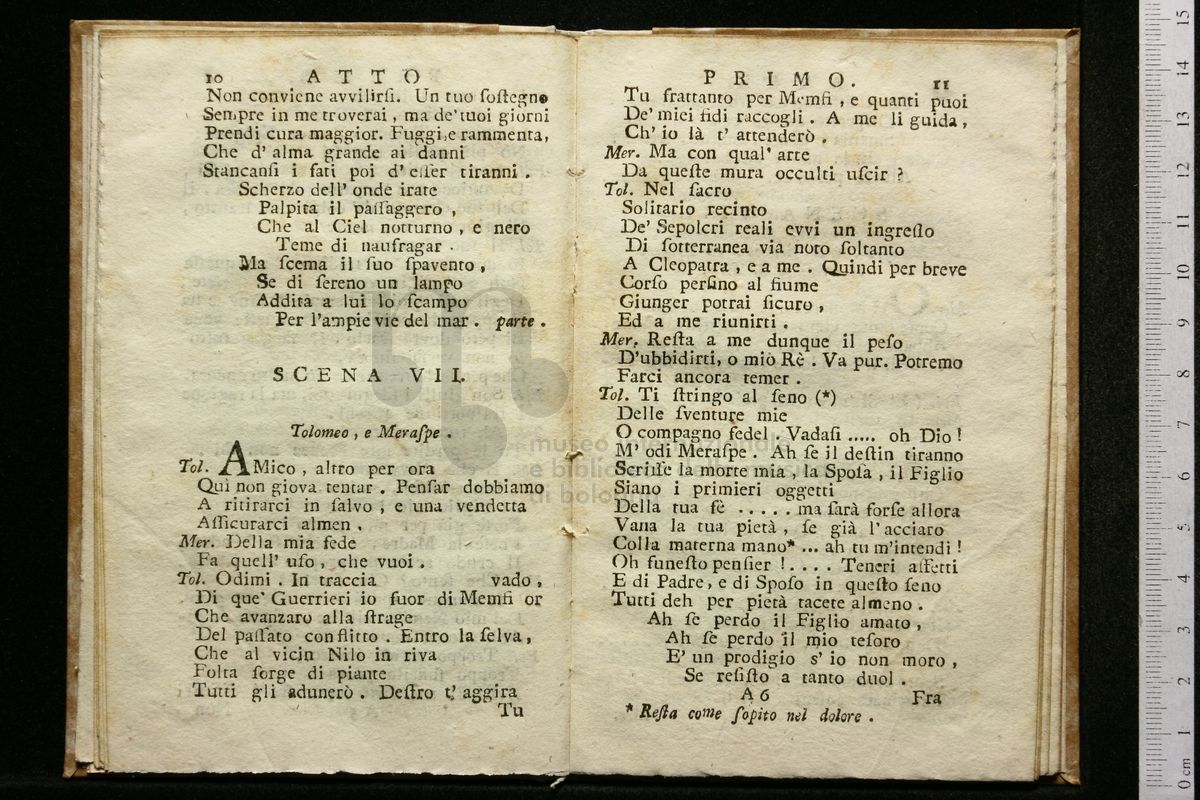 10 ATTO
Non conviene avvilirſi. Un tuo ſoſtegno
Sempre in me troverai, ma de' tuoi giorni
Prendi cura maggior. Fuggi, e rammenta,
Che d' alma grande ai danni
Stancanſi i fati poi d' eſſer tiranni.
Scherzo dell' onde irate
Palpita il paſſaggero,
Che al Ciel notturno, e nero
Teme di naufragar.
Ma ſcema il ſuo ſpavento,
Se di ſereno un lampo
Addita a lui lo ſcampo
Per l'ampie vie del mar. parte.
SCENA VII.
Tolomeo, e Meraſpe.
Tol. AMico, altro per ora
Quì non giova tentar. Penſar dobbiamo
A ritirarci in ſalvo, e una vendetta
Aſſicurarci almen.
Mer. Della mia fede
Fa quell' uſo, che vuoi.
Tol. Odimi. In traccia vado,
Di que' Guerrieri io fuor di Memfi or
Che avanzaro alla ſtrage
Del paſſato conflitto. Entro la ſelva,
Che al vicin Nilo in riva
Folta ſorge di piante
Tutti gli adunerò. Deſtro t' aggira
Tu
PRIMO. 11
Tu frattanto per Memfi, e quanti puoi
De' miei fidi raccogli. A me li guida,
Ch' io là t' attenderò.
Mer. Ma con qual' arte
Da queſte mura occulti uſcir?
Tol. Nel ſacro
Solitario recinto
De' Sepolcri reali evvi un ingreſſo
Di ſotterranea via noto ſoltanto
A Cleopatra, e a me. Quindi per breve
Corſo perſino al fiume
Giunger potrai ſicuro,
Ed a me riunirti.
Mer. Reſta a me dunque il peſo
D'ubbidirti, o miò Rè. Va pur. Potremo
Farci ancora temer.
Tol. Ti ſtringo al ſeno (*)
Delle ſventure mie
O compagno fedel. Vadaſi ..... oh Dio!
M' odi Meraſpe. Ah ſe il deſtin tiranno
Scriſſe la morte mia, la Spoſa, il Figlio
Siano i primieri oggetti
Della tua fè ..... ma ſarà forſe allora
Vana la tua pietà, ſe già l' acciaro
Colla materna mano* ... ah tu m'intendi!
Oh funeſto penſier!.... Teneri affetti
E di Padre, e di Spoſo in queſto ſeno
Tutti deh per pietà tacete almeno.
Ah ſe perdo il Figlio amato,
Ah ſe perdo il mio teſoro
E' un prodigio s' io non moro,
Se reſiſto a tanto duol.
A 6 Fra
* Reſta come ſopito nel dolore.
museo internazionale
e biblioteca della musica
di bologna
0 cm 1 2 3 4 5 6 7 8 9 10 11 12 13 14 15